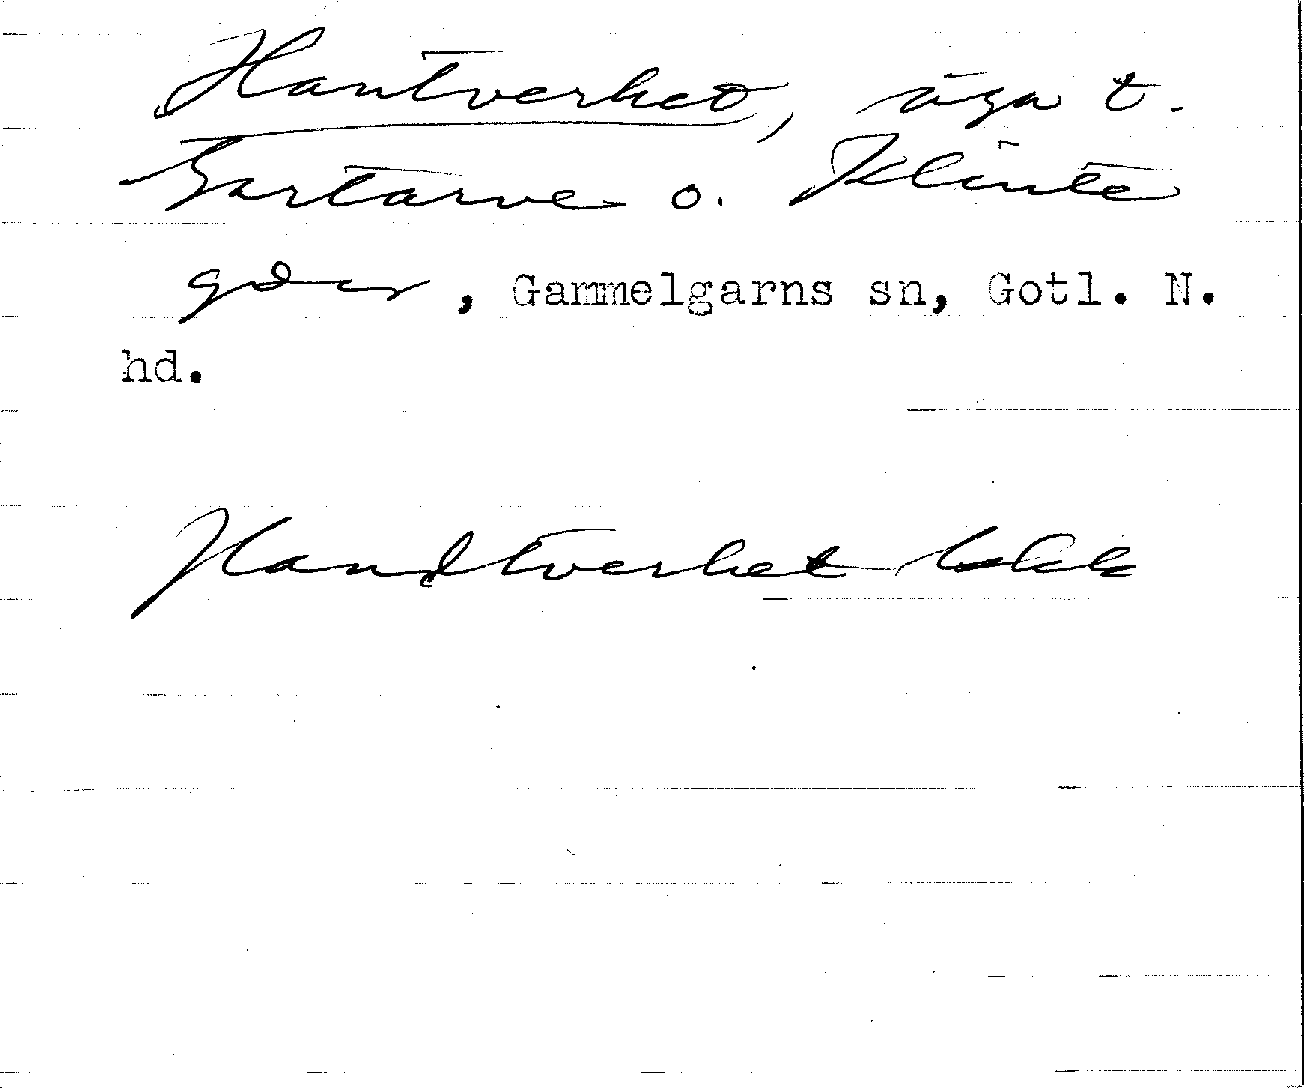 Hantverket, äga t.
Bartarve o. Klinte
gdar, Gammelgarns sn, Gotl. N.
hd.
Handtverket